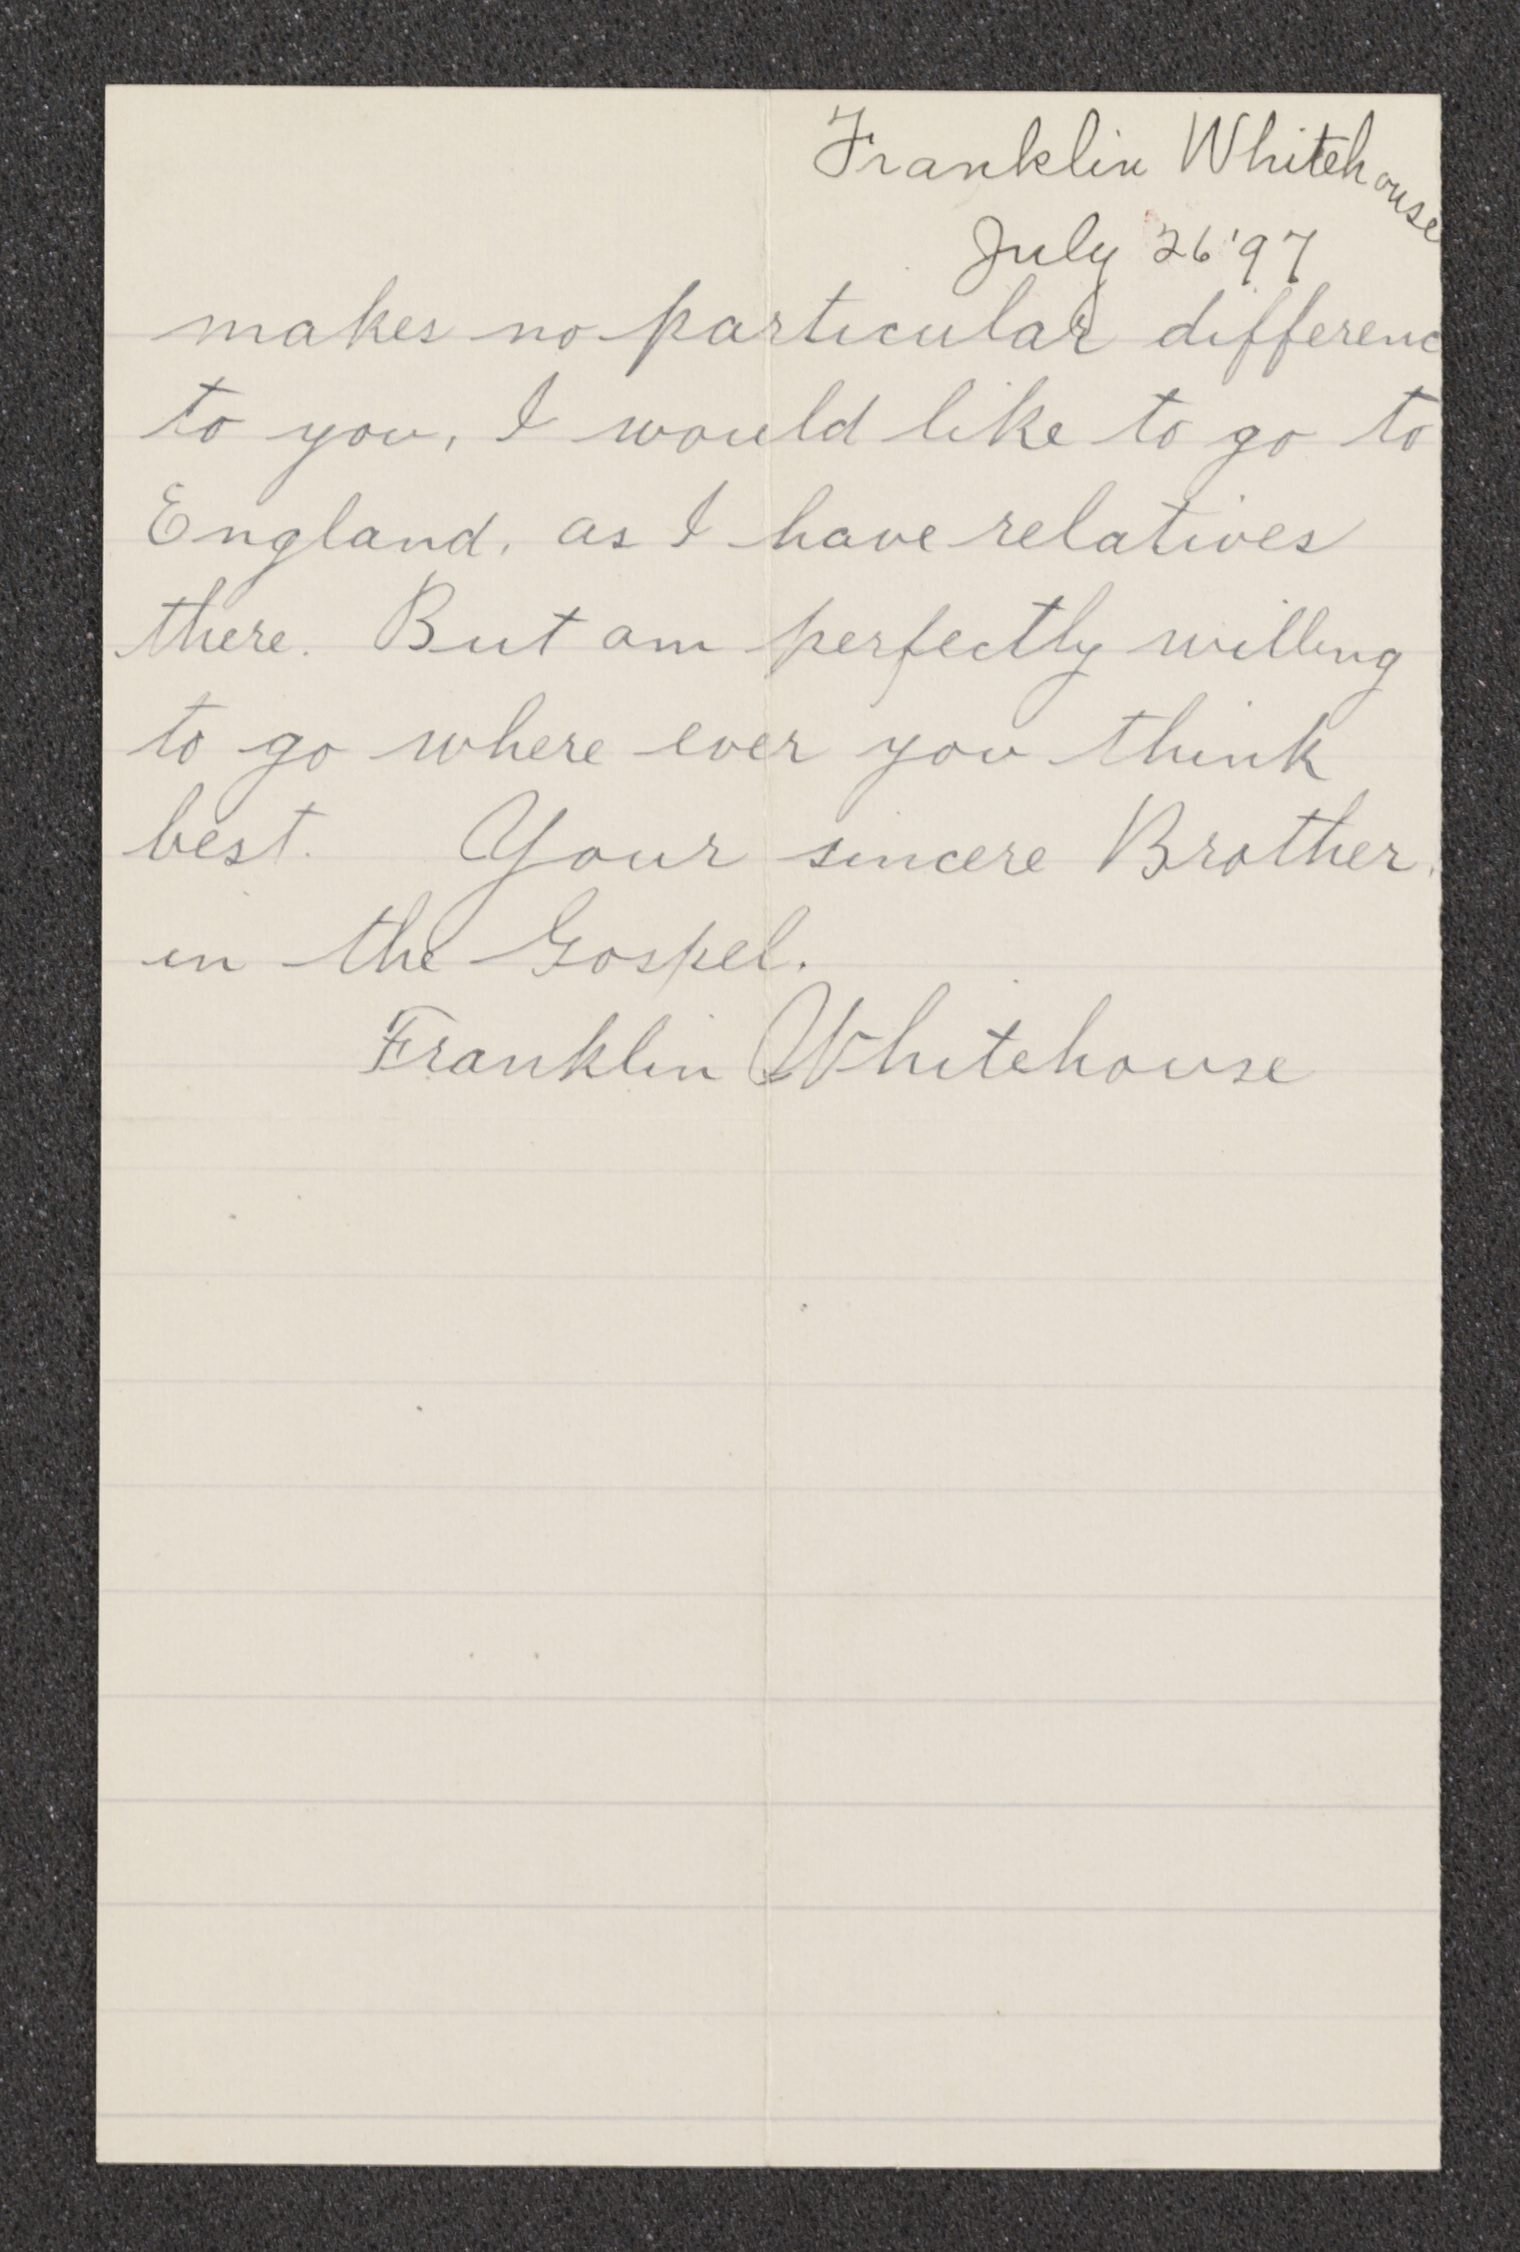 Franklin Whitehouse
July 26 '97
makes no particular differenc
to you, I would like to go to
England, as I have relatives
there. But am perfectly willing
to go where ever you think
best. Your sincere Brother.
in the Gospel.
Franklin Whitehouse